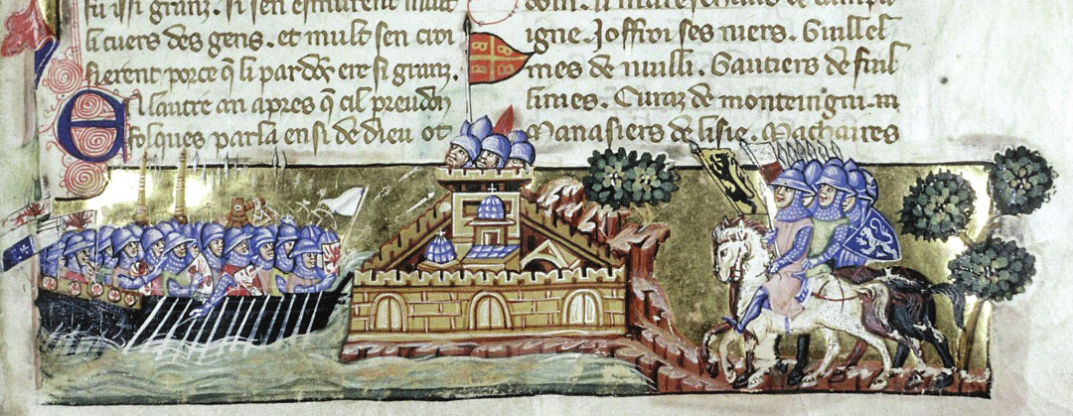 fu issi granz. si sen esmurent mult
li cuers des gens. et mult sen croi
sierent porce q̃ li pardõs ere si granz.
En lautre an apres q̃ cil preudõ
folques parla ensi de dieu ot
doin. li mareschaus de campa
igne. Joffroi ses niers. Guillel
mes de nuilli. Gautiers de fuil
lines. Curaz de monteingni. m
Manasiers de lisle. Machaires